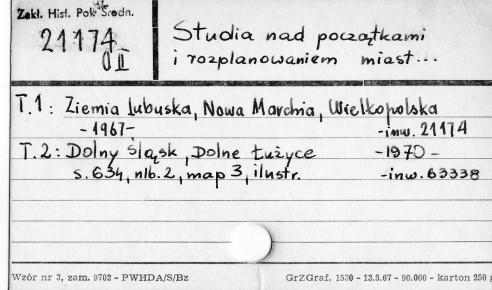 Zakł. Hist. Pol. Średn.
21174
O II
Studia nad początkami
i rozplanowaniem miast...
T.1: Ziemia Lubuska, Nowa Marchia, Wielkopolska
-1967- -inw. 21174
T.2: Dolny Śląsk, Dolne Łużyce -1970-
s.634, nlb.2, map 3, ilustr. -inw. 63338
Wzór nr 3, zam. 9702 - PWHDA/S/Bz GrZGraf. 1530 - 13.5.67 - 90.000 - karton 250 g